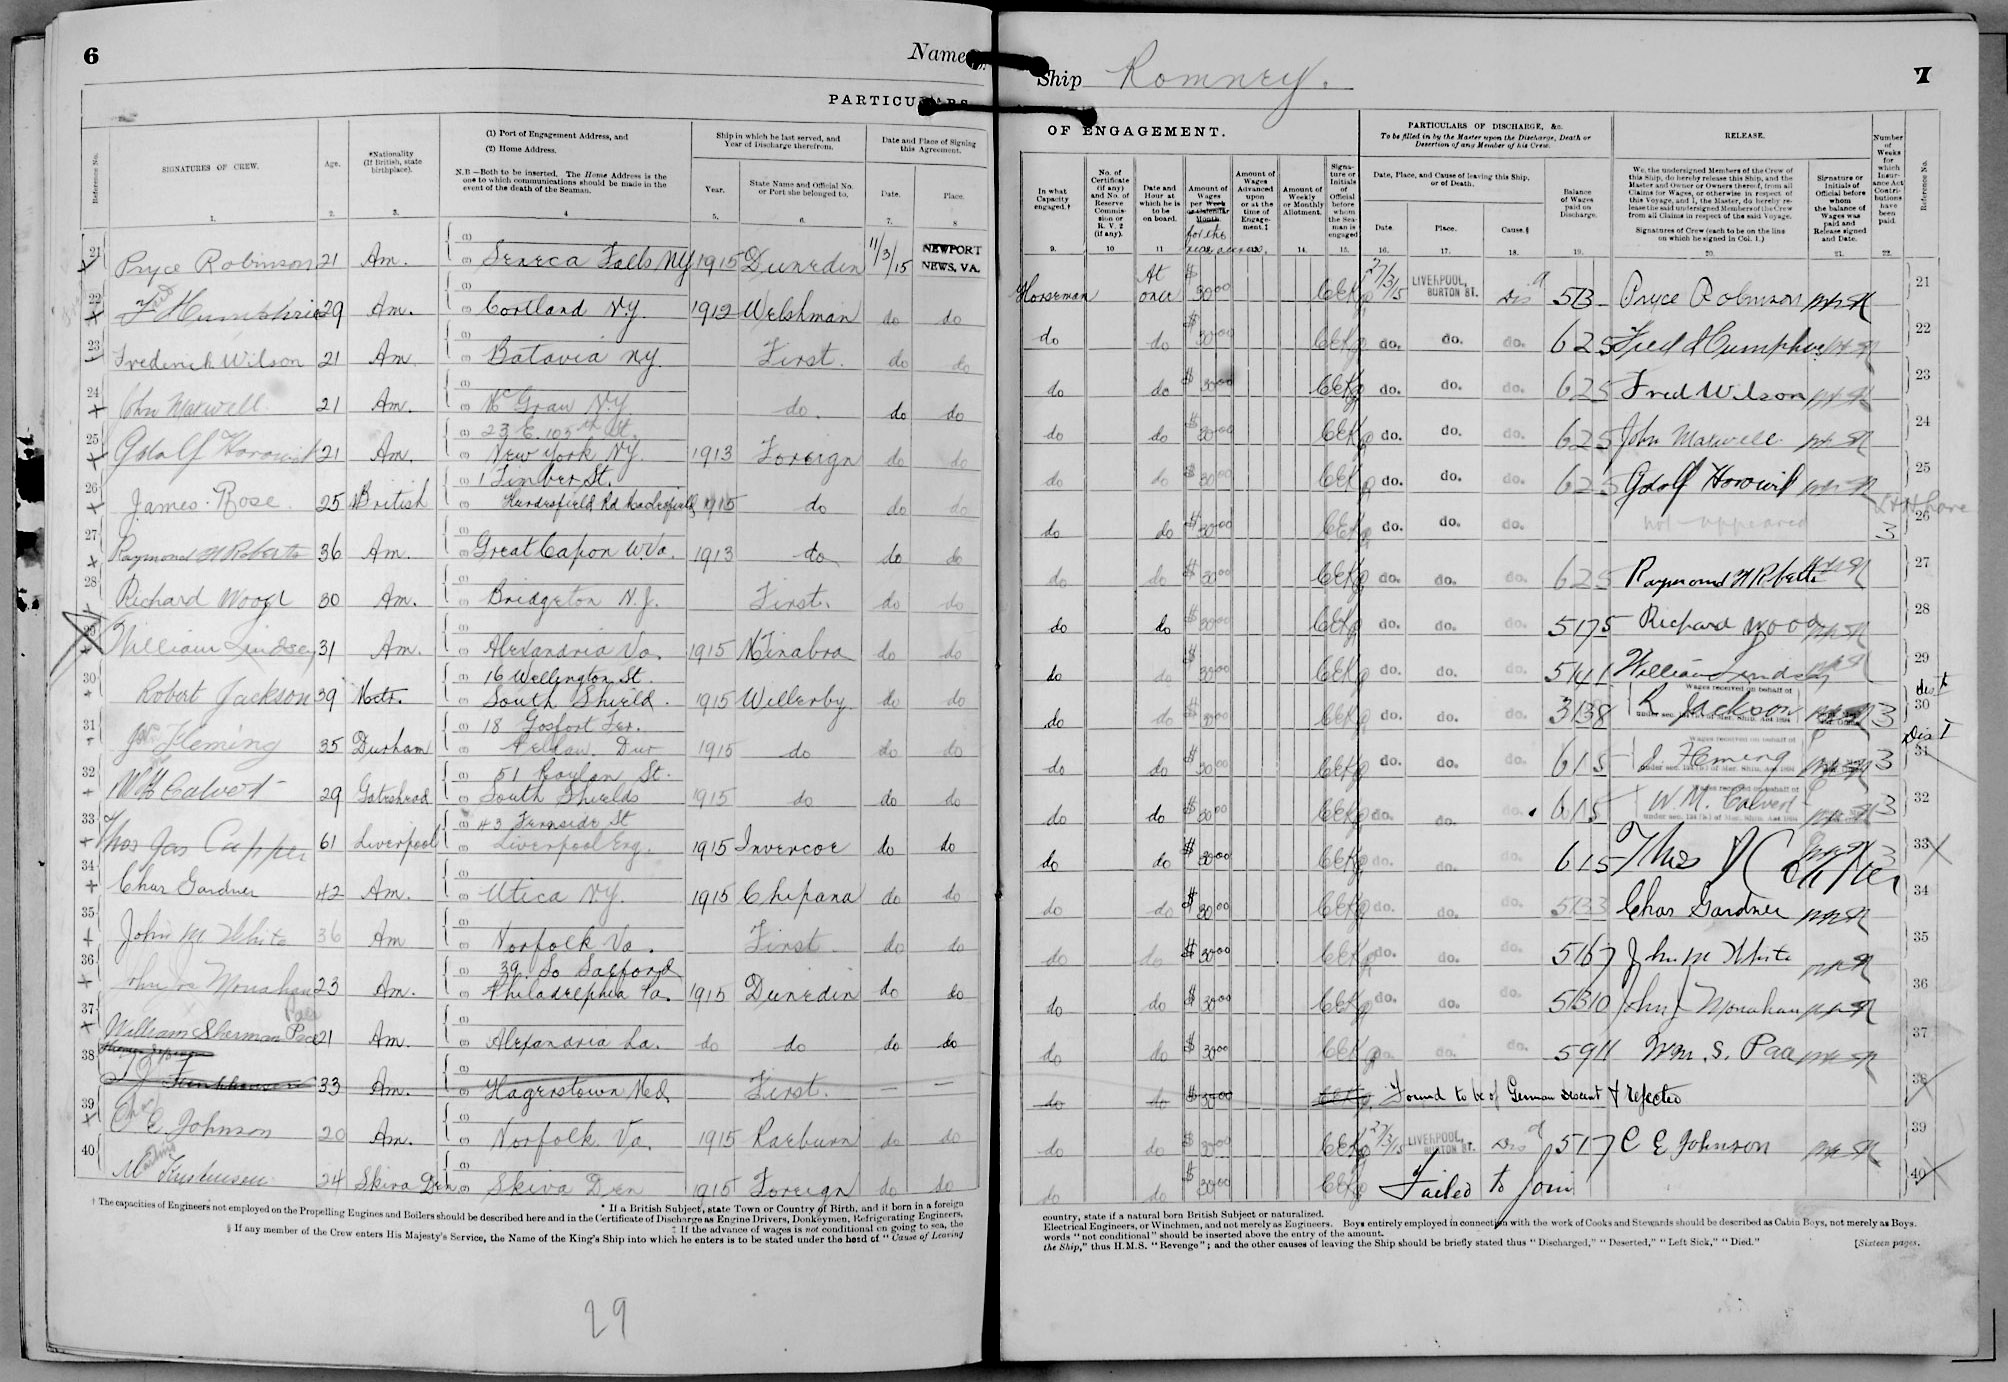 6
Name
PARTICULARS
Reference No.
SIGNATURES OF CREW.
Age.
*Nationality
(If British, state
birthplace).
(1) Port of Engagement Address, and
(2) Home Address.
N.B.—Both to be inserted. The Home Address is the
one to which communications should be made in the
event of the death of the Seaman.
Ship in which he last served, and
Year of Discharge therefrom.
Year.
State Name and Official No.
or Port she belonged to.
Date and Place of Signing
this Agreement.
Date.
Place.
1. 2. 3. 4 5. 6. 7. 8
21 Pryce Robinson 21 Am. Seneca Falls NY 1915 Dunedin 11/3/15 NEWPORT NEWS, VA.
22 Humphries 29 Am. Cortland N.Y. 1912 Welshman do do
23 Frederick Wilson 21 Am Batavia NY. First. do do
24 John Maxwell 21 Am. McGraw N.Y. do. do do
25 21 Am. 23 E. 105th St.
New York N.Y. 1913 Foreign do do
26 James Rose 25 British 1 Timber St.
Hurdsfield Rd 1915 do do do
27 Raymond H Roberts 36 Am. Great Capon W.Va. 1913 do do do
28 Richard Wood 30 Am. Bridgeton N.J. First. do do
29 William Lindsey 31 Am. Alexandria Va. 1915 do do
30 Robert Jackson 39 16 Wellington St.
South Shield. 1915 Willerby do do
31 Jno Fleming 35 Durham 18 Gosfort Ter.
Dur 1915 do do do
32 Wm Calvert 29 Gateshead 51 St.
South Shields 1915 do do do
33 Thos Jas Capper 61 Liverpool 43 Fernside St
Liverpool Eng. 1915 Invercoe do do
34 Chas Gardner 42 Am. Utica N.Y. 1915 Chipana do do
35 John M White 36 Am Norfolk Va. First. do do
36 Monahan 23 Am. 39 So Safford
Philadelphia Pa. 1915 Dunedin do do
37 William Sherman Pace 21 Am. Alexandria La. do do do do
38 33 Am. Hagerstown Md. First. — —
39 C E Johnson 20 Am. Norfolk Va. 1915 Raeburn do do
40 24 Skiva Den Skiva Den 1915 Foreign do do
* If a British Subject, state Town or Country of Birth, and if born in a foreign
† The capacities of Engineers not employed on the Propelling Engines and Boilers should be described here and in the Certificate of Discharge as Engine Drivers, Donkeymen, Refrigerating Engineers,
‡ If the advance of wages is not conditional on going to sea, the
§ If any member of the Crew enters His Majesty's Service, the Name of the King's Ship into which he enters is to be stated under the head of "Cause of Leaving
29
Ship Romney.
7
OF ENGAGEMENT.
PARTICULARS OF DISCHARGE, &c.
To be filled in by the Master upon the Discharge, Death or
Desertion of any Member of his Crew.
RELEASE.
In what
Capacity
engaged.†
No. of
Certificate
(if any)
and No. of
Reserve
Commis-
sion or
R. V. 2
(if any).
Date and
Hour at
which he is
to be
on board.
Amount of
Wages
per Week
or Calendar
Month.
for the
Amount of
Wages
Advanced
upon
or at the
time of
Engage-
ment.‡
Amount of
Weekly
or Monthly
Allotment.
Signa-
ture or
Initials
of
Official
before
whom
the Sea-
man is
engaged
Date, Place, and Cause of leaving this Ship,
or of Death.
Date.
Place.
Cause.§
Balance
of Wages
paid on
Discharge.
We, the undersigned Members of the Crew of
this Ship, do hereby release this Ship, and the
Master and Owner or Owners thereof, from all
Claims for Wages, or otherwise in respect of
this Voyage, and I, the Master, do hereby re-
lease the said undersigned Members of the Crew
from all Claims in respect of the said Voyage.
Signatures of Crew (each to be on the line
on which he signed in Col. 1.)
Signature or
Initials of
Official before
whom
the balance of
Wages was
paid and
Release signed
and Date.
Number
of
Weeks
for
which
Insur-
ance Act
Contri-
butions
have
been
paid.
Reference No.
9. 10 11 14. 15. 16. 17. 18. 19. 20. 21. 22.
Horseman At once $ 30 00 CEK 27/3/15 LIVERPOOL, BURTON ST. Disd 5 13 Pryce Robinson 21
do do $ 30 00 CEK do. do. do. 6 2 5 Fred Humphries 22
do do $ 30 00 CEK do. do. do. 6 2 5 Fred Wilson 23
do do $ 30 00 CEK do. do. do. 6 2 5 John Maxwell 24
do do $ 30 00 CEK do. do. do. 6 2 5 25
do do $ 30 00 CEK do. do. do. not appeared 3 26
do do $ 30 00 CEK do. do. do. 6 2 5 Raymond H Roberts 27
do do $ 30 00 CEK do. do. do. 5 17 5 Richard Wood 28
do do $ 30 00 CEK do. do. do. 5 14 1 William Lindsey 29
do do $ 30 00 CEK do. do. do. 3 13 8 Wages received on behalf of R Jackson under sec. of Mer. Ship. Act 1894 3 30
do do $ 30 00 CEK do. do. do. 6 1 5 Wages received on behalf of J. Fleming under sec. of Mer. Ship. Act 1894 3 31
do do $ 30 00 CEK do. do. do. 6 1 5 Wages received on behalf of W. M. Calvert under sec. of Mer. Ship. Act 1894 3 32
do do $ 30 00 CEK do. do. do. 6 1 5 Thos J Capper 3 33
do do $ 30 00 CEK do. do. do. 5 13 3 Chas Gardner 34
do do $ 30 00 CEK do. do. do. 5 16 7 John M White 35
do do $ 30 00 CEK do. do. do. 5 13 10 John J Monahan 36
do do $ 30 00 CEK do. do. do. 5 9 11 Wm. S. Pace 37
do do $ 30 00 CEK Found to be of German descent & rejected 38
do do $ 30 00 CEK 27/3/15 LIVERPOOL, BURTON ST. Disd 5 17 C E Johnson 39
do do $ 30 00 CEK Failed to Join 40
country, state if a natural born British Subject or naturalized.
Electrical Engineers, or Winchmen, and not merely as Engineers. Boys entirely employed in connection with the work of Cooks and Stewards should be described as Cabin Boys, not merely as Boys.
words "not conditional" should be inserted above the entry of the amount.
the Ship," thus H.M.S. "Revenge"; and the other causes of leaving the Ship should be briefly stated thus "Discharged," "Deserted," "Left Sick," "Died."
[Sixteen pages.